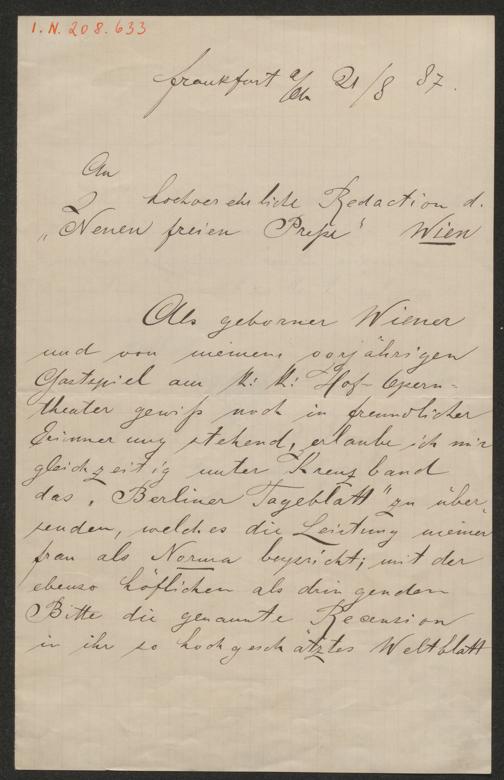 I.N. 208.633
Frankfurt a/M 21/8 87.
An
hochverehrliche Redaction d.
„Neuen freien Preße“ Wien
Als geborner Wiener
und von meinem vorjährigen
Gastspiel am K: K: Hof-Opern-
theater gewiß noch in freundlicher
Erinnerung stehend, erlaube ich mir
gleichzeitig unter Kreuzband
das „Berliner Tageblatt“ zu über-
senden, welches die Leistung meiner
Frau als Norma bespricht; mit der
ebenso höflichen als dringenden
Bitte die genannte Recension
in ihr so hochgeschätztes Weltblatt